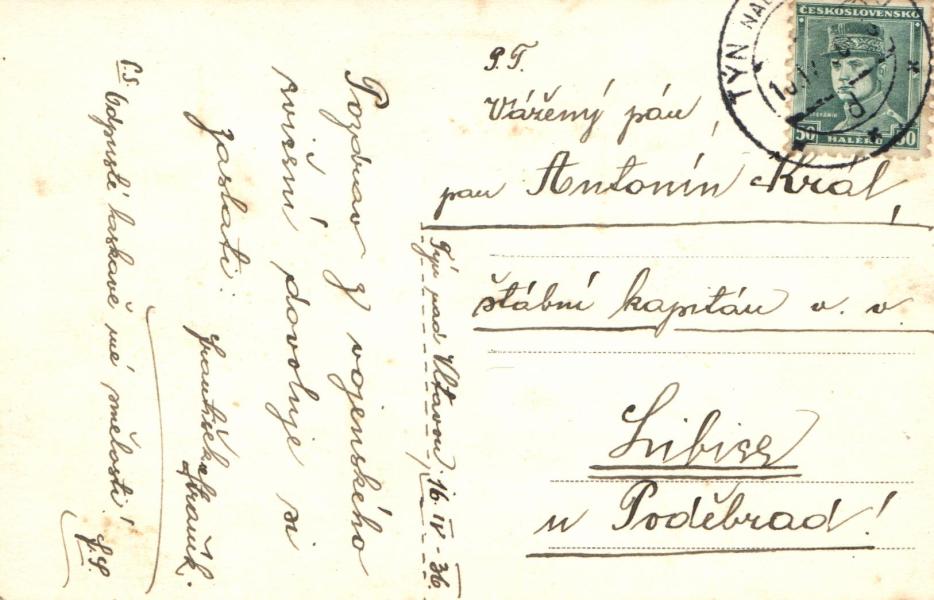 Pozdrav z vojenského
cvičení dovoluje si
zaslati:
František
P.S. Odpusťte laskavě mé smělosti!
Týn nad Vltavou 16. IV - 36.
P.T.
Vážený pán,
pan Antonín Král,
štábní kapitán v. v.
Libice
u Poděbrad!
ČESKOSLOVENSKO
ŠTEFÁNIK
50 HALÉŘŮ 50
TÝN NAD